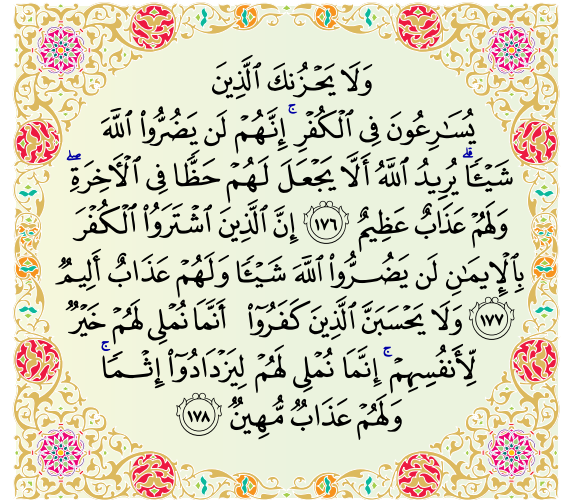 وَلَا يَحۡزُنكَ ٱلَّذِينَ
يُسَٰرِعُونَ فِي ٱلۡكُفۡرِۚ إِنَّهُمۡ لَن يَضُرُّواْ ٱللَّهَ
شَيۡـٔٗاۗ يُرِيدُ ٱللَّهُ أَلَّا يَجۡعَلَ لَهُمۡ حَظّٗا فِي ٱلۡأٓخِرَةِۖ
وَلَهُمۡ عَذَابٌ عَظِيمٌ ١٧٦ إِنَّ ٱلَّذِينَ ٱشۡتَرَوُاْ ٱلۡكُفۡرَ
بِٱلۡإِيمَٰنِ لَن يَضُرُّواْ ٱللَّهَ شَيۡـٔٗا وَلَهُمۡ عَذَابٌ أَلِيمٞ
١٧٧ وَلَا يَحۡسَبَنَّ ٱلَّذِينَ كَفَرُوٓاْ أَنَّمَا نُمۡلِي لَهُمۡ خَيۡرٞ
لِّأَنفُسِهِمۡۚ إِنَّمَا نُمۡلِي لَهُمۡ لِيَزۡدَادُوٓاْ إِثۡمٗاۚ
وَلَهُمۡ عَذَابٞ مُّهِينٞ ١٧٨